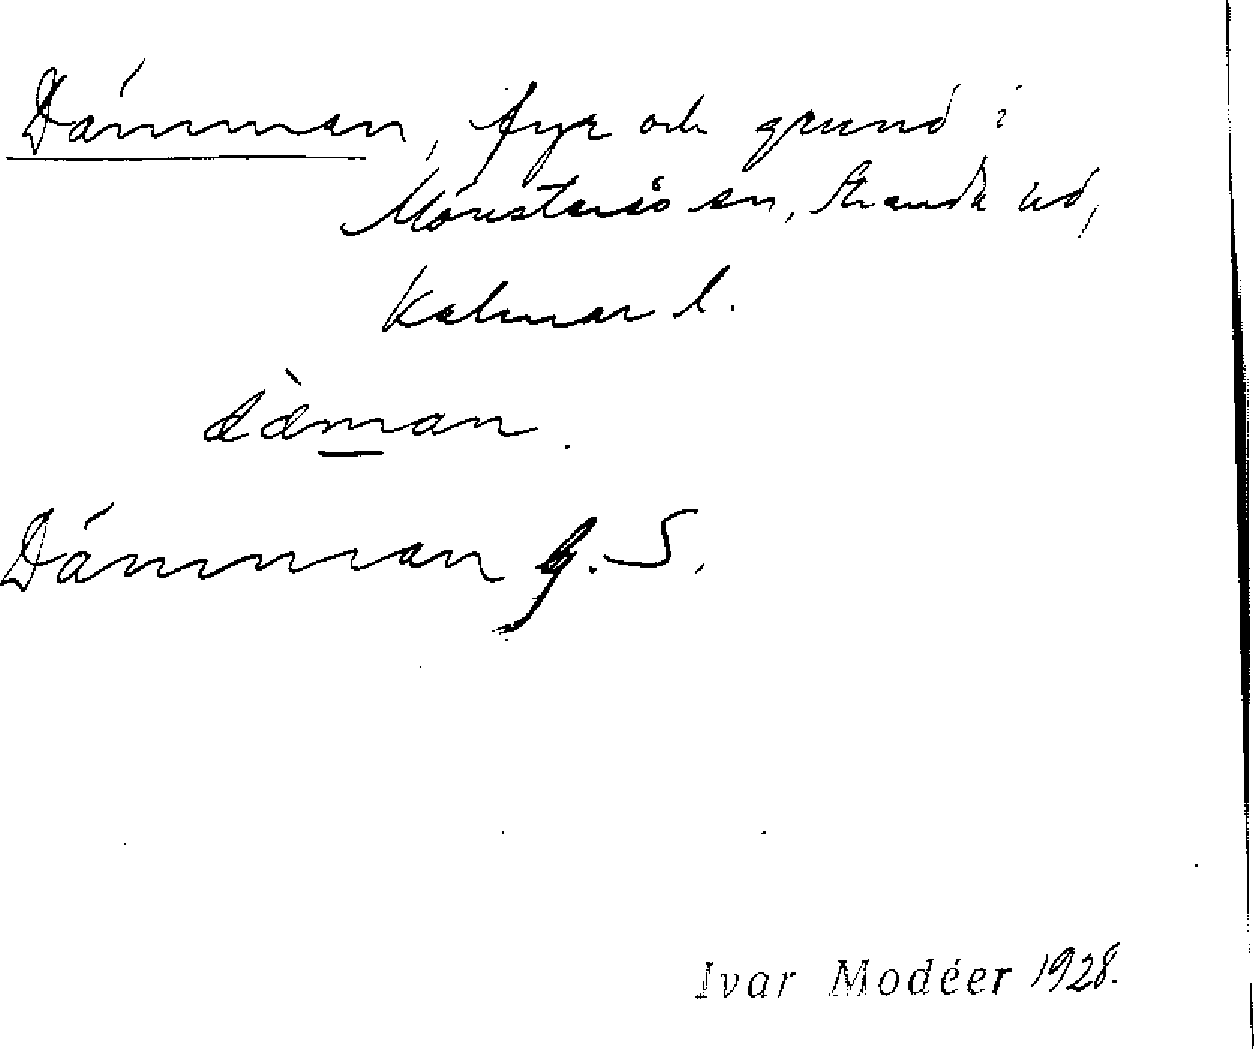 Dämman, fyr och grund i
Mönsterås sn, Stranda hd,
Kalmar l.
dæ̀man.
Dämman G. S.
Ivar Modéer 1928.